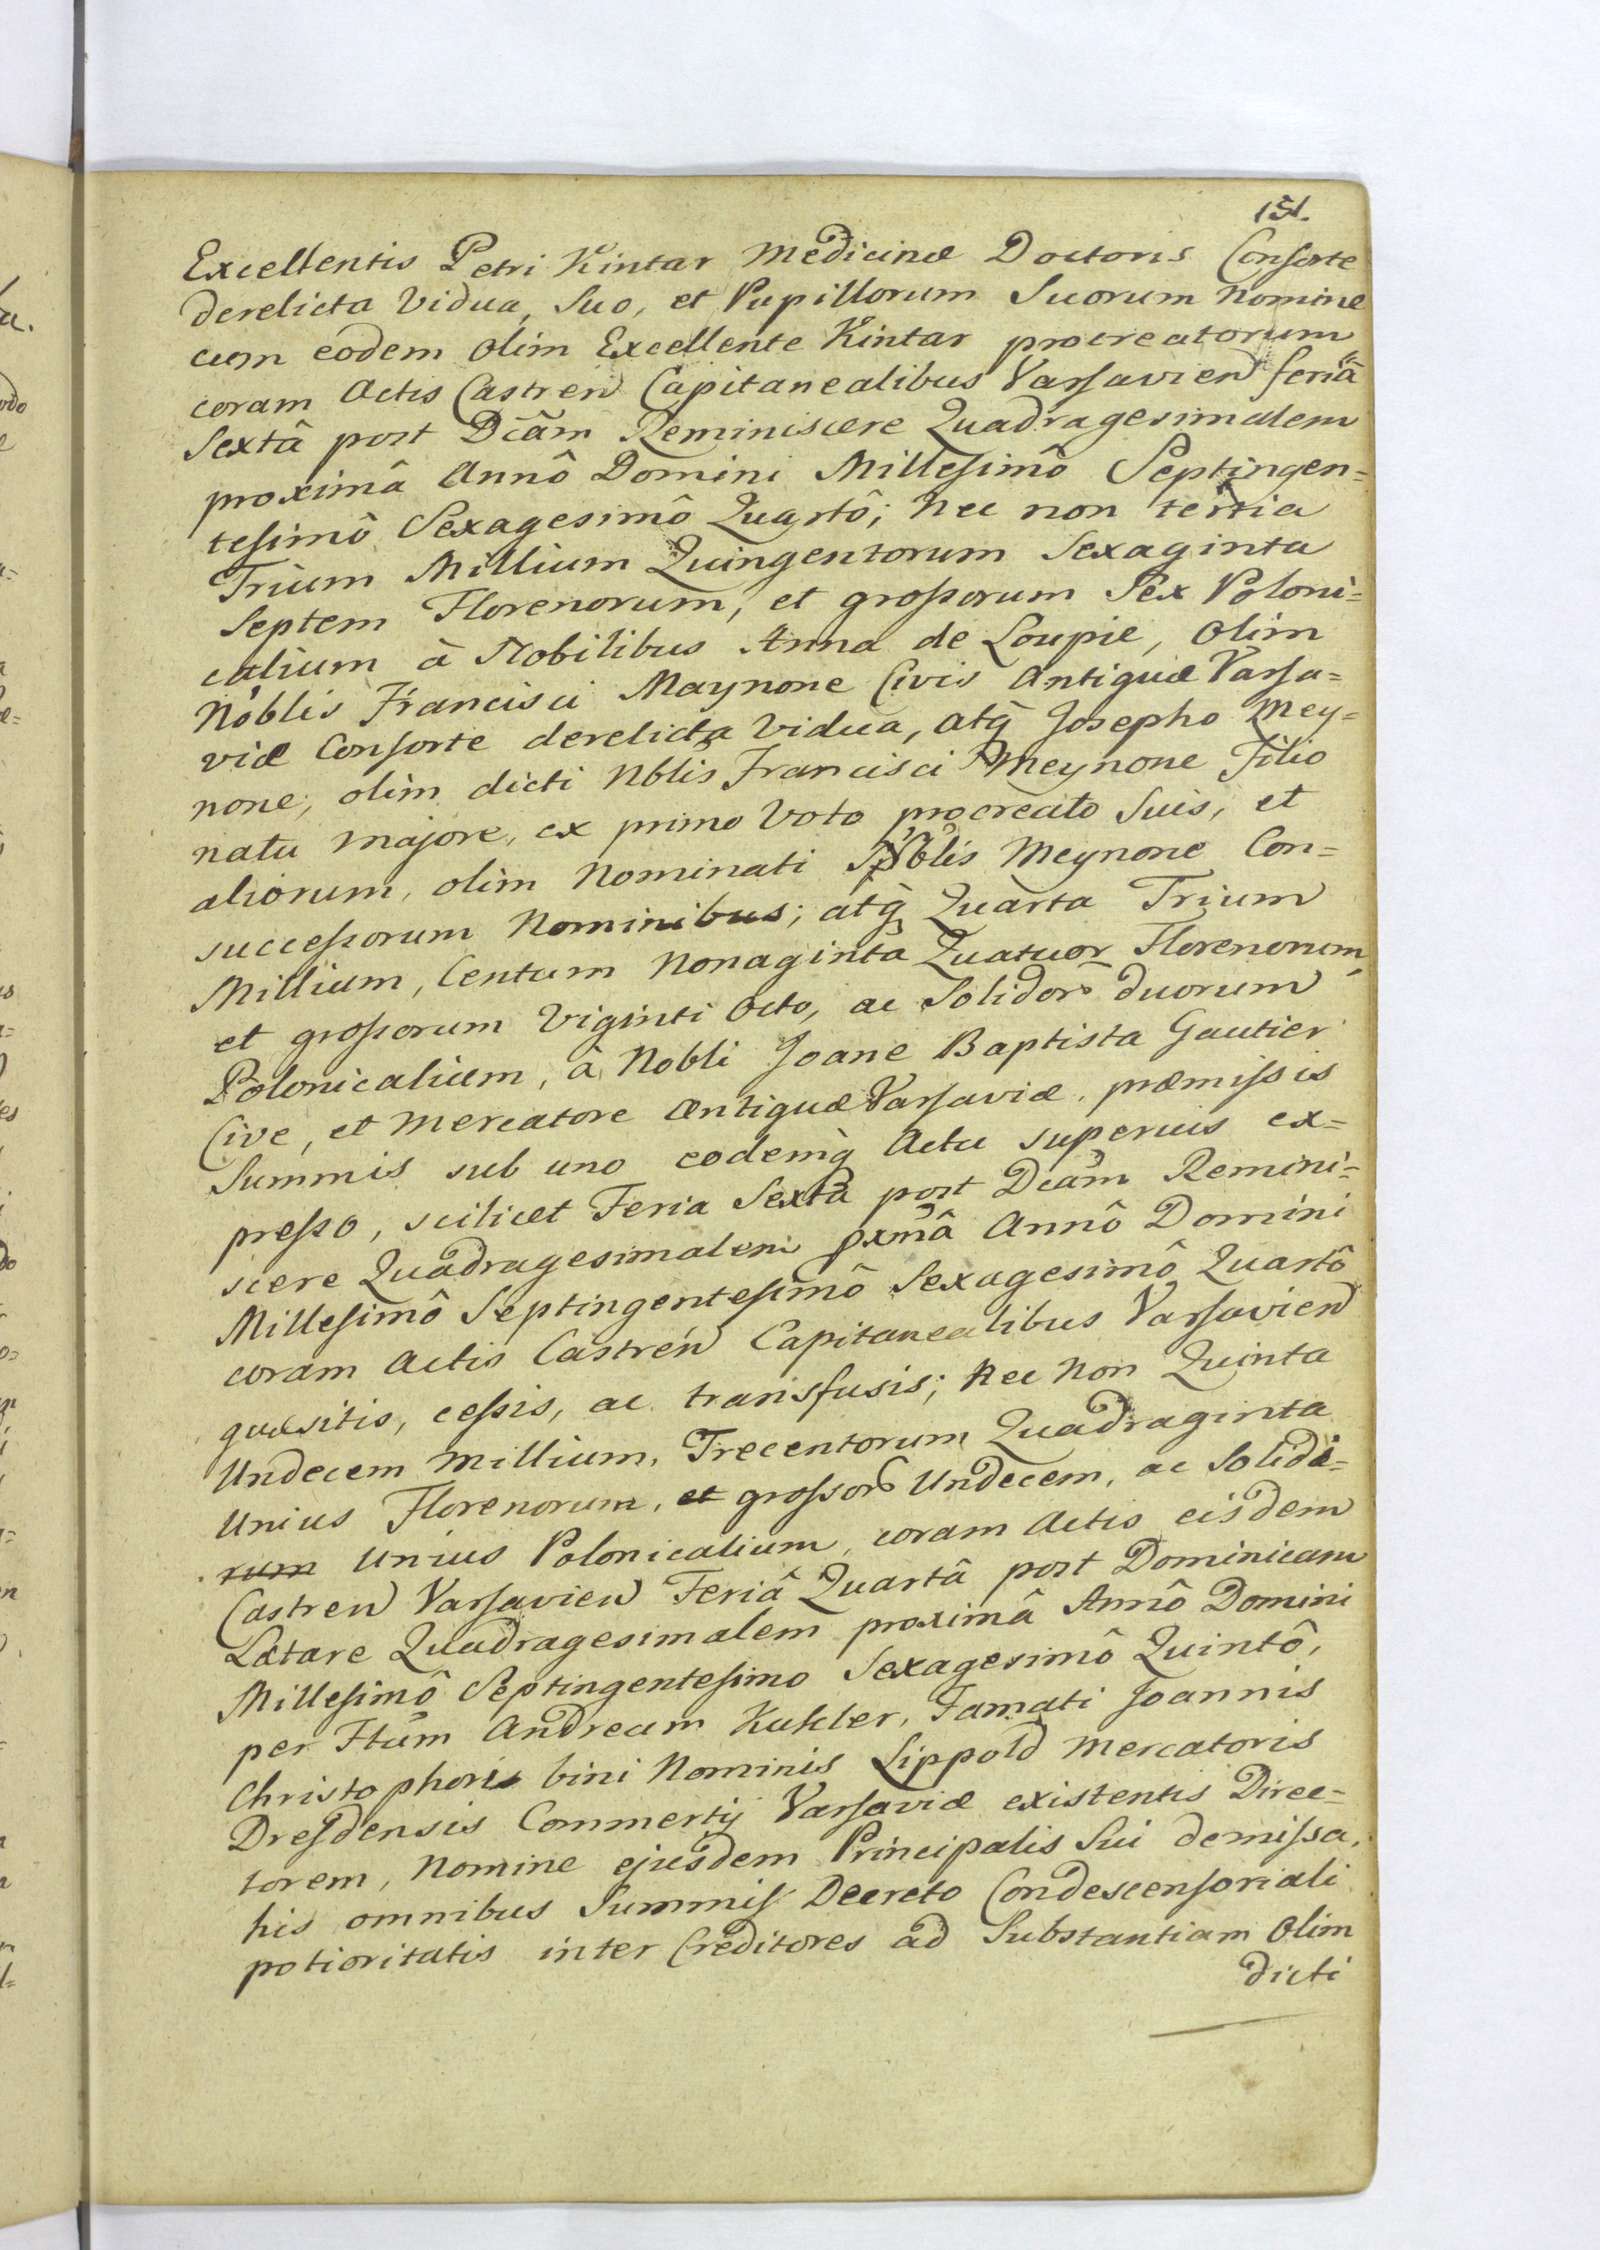 151.
Excellentis Petri Kintar Medicinæ Doctoris Consorte
derelicta Vidua, Suo, et Pupillorum Suorum Nomine
cum eodem olim Excellente Kintar procreatorum
coram Actis Castren Capitanealibus Varsavien feriâ
Sextâ post Dcâm Reminiscere Quadragesimalem
proximâ Annô Domini Millesimô Septingen=
tesimô Sexagesimô Quartô; Nec non tertia
Trium Millium Quingentorum Sexaginta
Septem Florenorum, et grossorum Sex Poloni=
calium à Nobilibus Anna de Loupie, olim
Noblis Francisci Maynone Civis Antiquæ Varsa=
viæ Consorte derelicta Vidua, atq̃ Josepho Mey=
none, olim dicti Nblis Francisci Meynone Filio
natu majore, ex primo Voto procreato Suis, et
aliorum, olim Nominati Nblis Meynone Con=
successorum Nominibus; atq̃ Quarta Trium
Millium, Centum Nonaginta Quatuor Florenorum,
et grossorum Viginti Octo, ac Solidor̃ duorum
Polonicalium, à Nobli Joane Baptista Gautier
Cive, et Mercatore Antiquæ Varsaviæ, præmissis
Summis sub uno eodemq̃ Actu superius ex=
presso, scilicet Feria Sexta post Dcam Remini=
scere Quadragesimalem pxmâ Annô Domini
Millesimô Septingentesimô Sexagesimô Quartô
coram Actis Castren Capitanealibus Varsavien
quæsitis, cessis, ac transfusis; Nec Non Quinta
Undecem Millium, Trecentorum Quadraginta
Unius Florenorum, et grossor̃ Undecem, ac Solidi=
rum Unius Polonicalium, coram Actis eisdem
Castren Varsavien Feriâ Quartâ post Dominicam
Lætare Quadragesimalem proximâ Annô Domini
Millesimô Septingentesimo Sexagesimô Quintô,
per Ftum Andream Kuhler, Famati Joannis
Christophori bini Nominis Lippold Mercatoris
Dresdensis Commertij Varsaviæ existentis Direc=
torem, Nomine ejusdem Principalis Sui demissa,
his omnibus Summis Decreto Condescensoriali
potioritatis inter Creditores ad Substantiam Olim
dicti